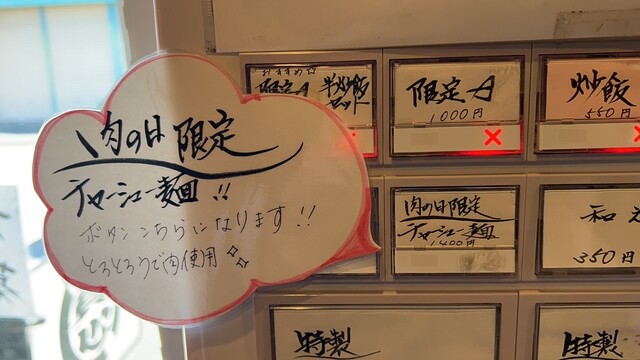 肉の日 限定
チャーシュー麺 !!
ボタンこちらになります!!
とろとろうで肉使用
おすすめ☆
限定A 半炒飯
セット
限定A
1000円
炒飯
550円
肉の日限定
チャーシュー麺
1400円
和え
350円
特製
特製